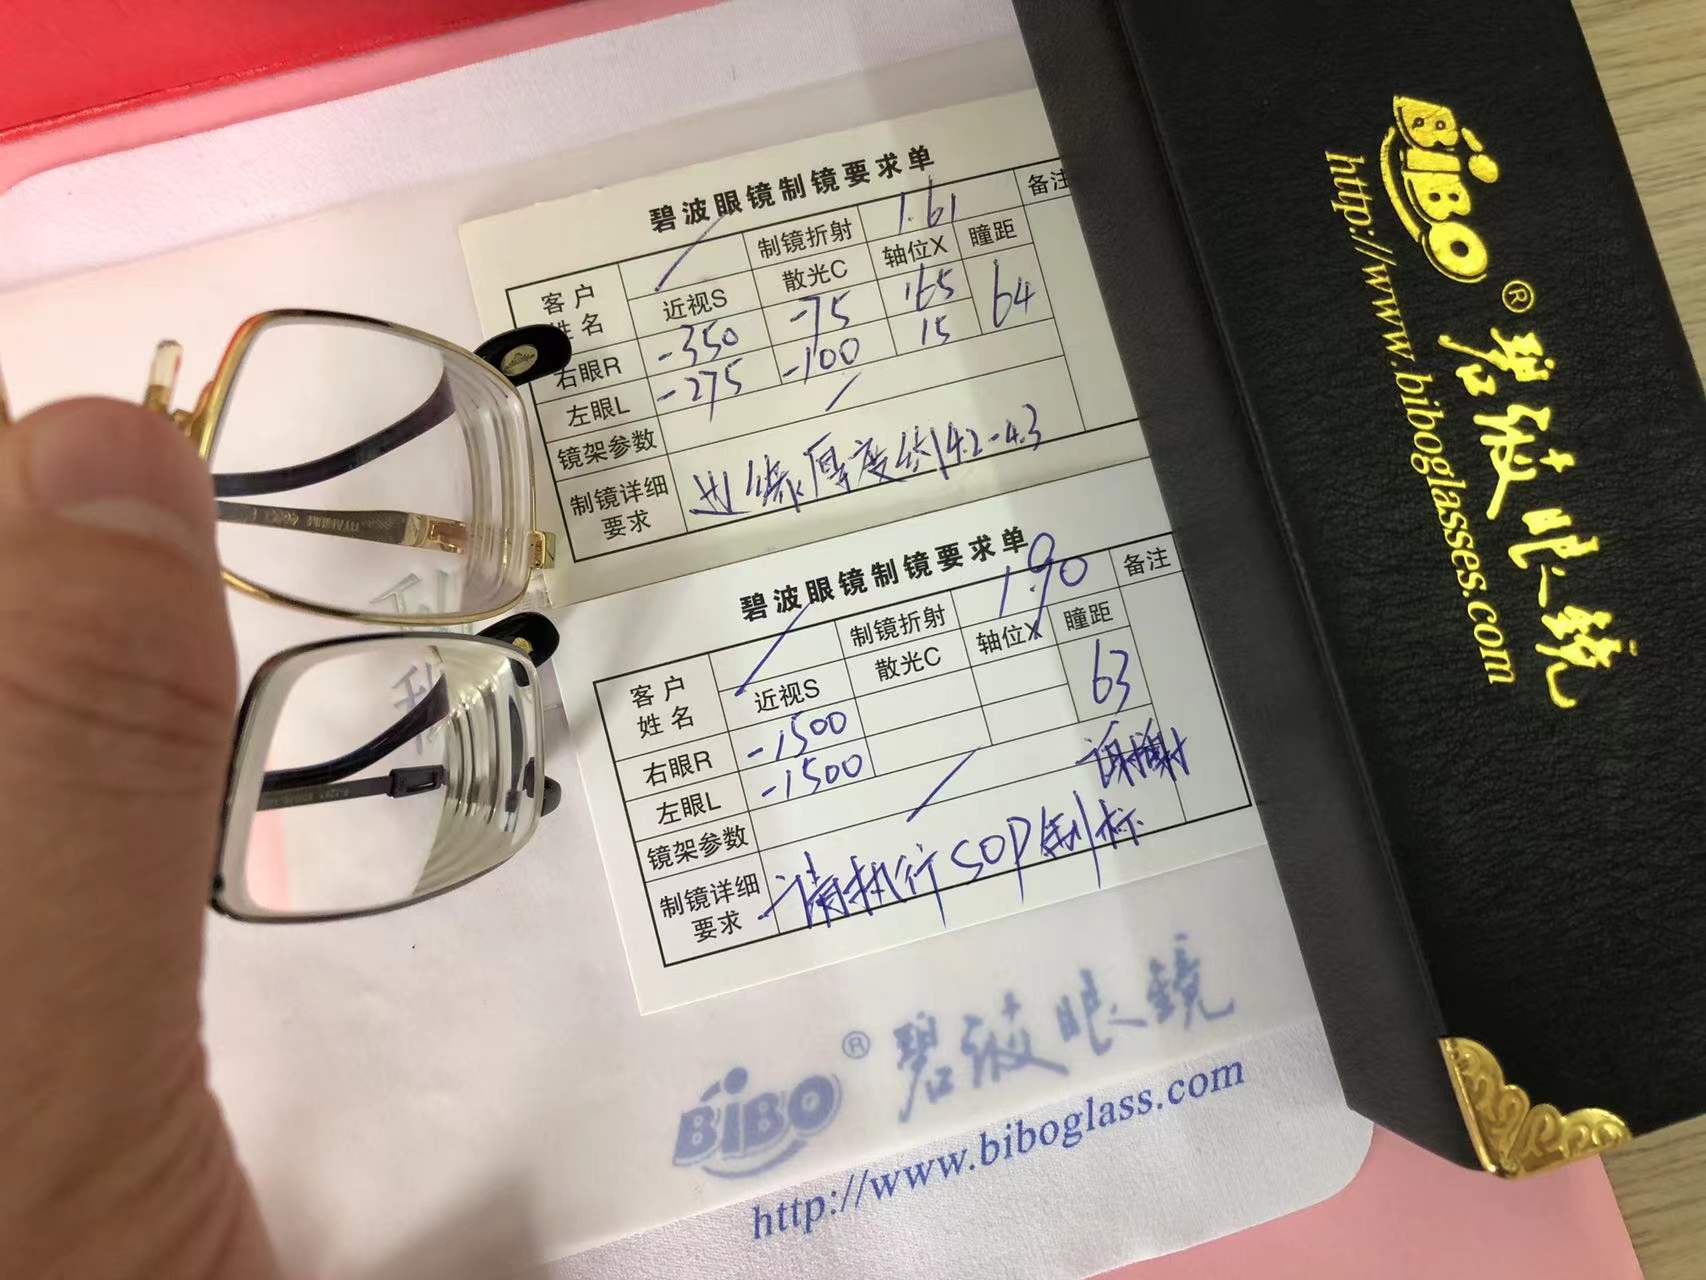 碧波眼镜制镜要求单
客户姓名 制镜折射 1.61 备注
近视S 散光C 轴位X 瞳距
右眼R -350 -75 165 64
左眼L -275 -100 15
镜架参数
制镜详细要求 边缘厚度约4.2-4.3
碧波眼镜制镜要求单
客户姓名 制镜折射 1.90 备注
近视S 散光C 轴位X 瞳距
右眼R -1500 63
左眼L -1500
镜架参数
制镜详细要求 请执行SOP制标 谢谢
BiBO® 碧波眼镜
http://www.biboglass.com
BiBO® 碧波眼镜
http://www.biboglasses.com